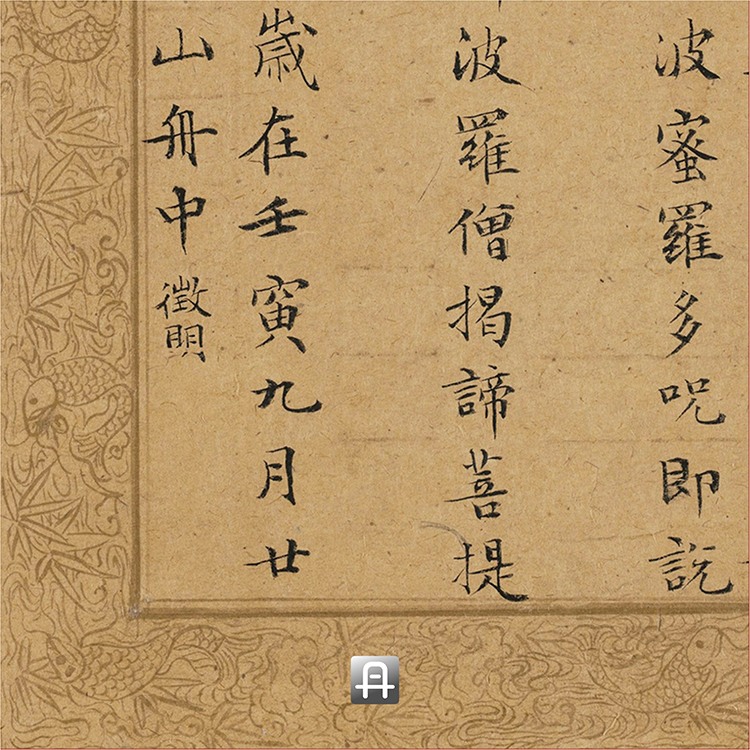 波蜜羅多呪即說
波羅僧揭諦菩提
歲在壬寅九月廿
山舟中徵明